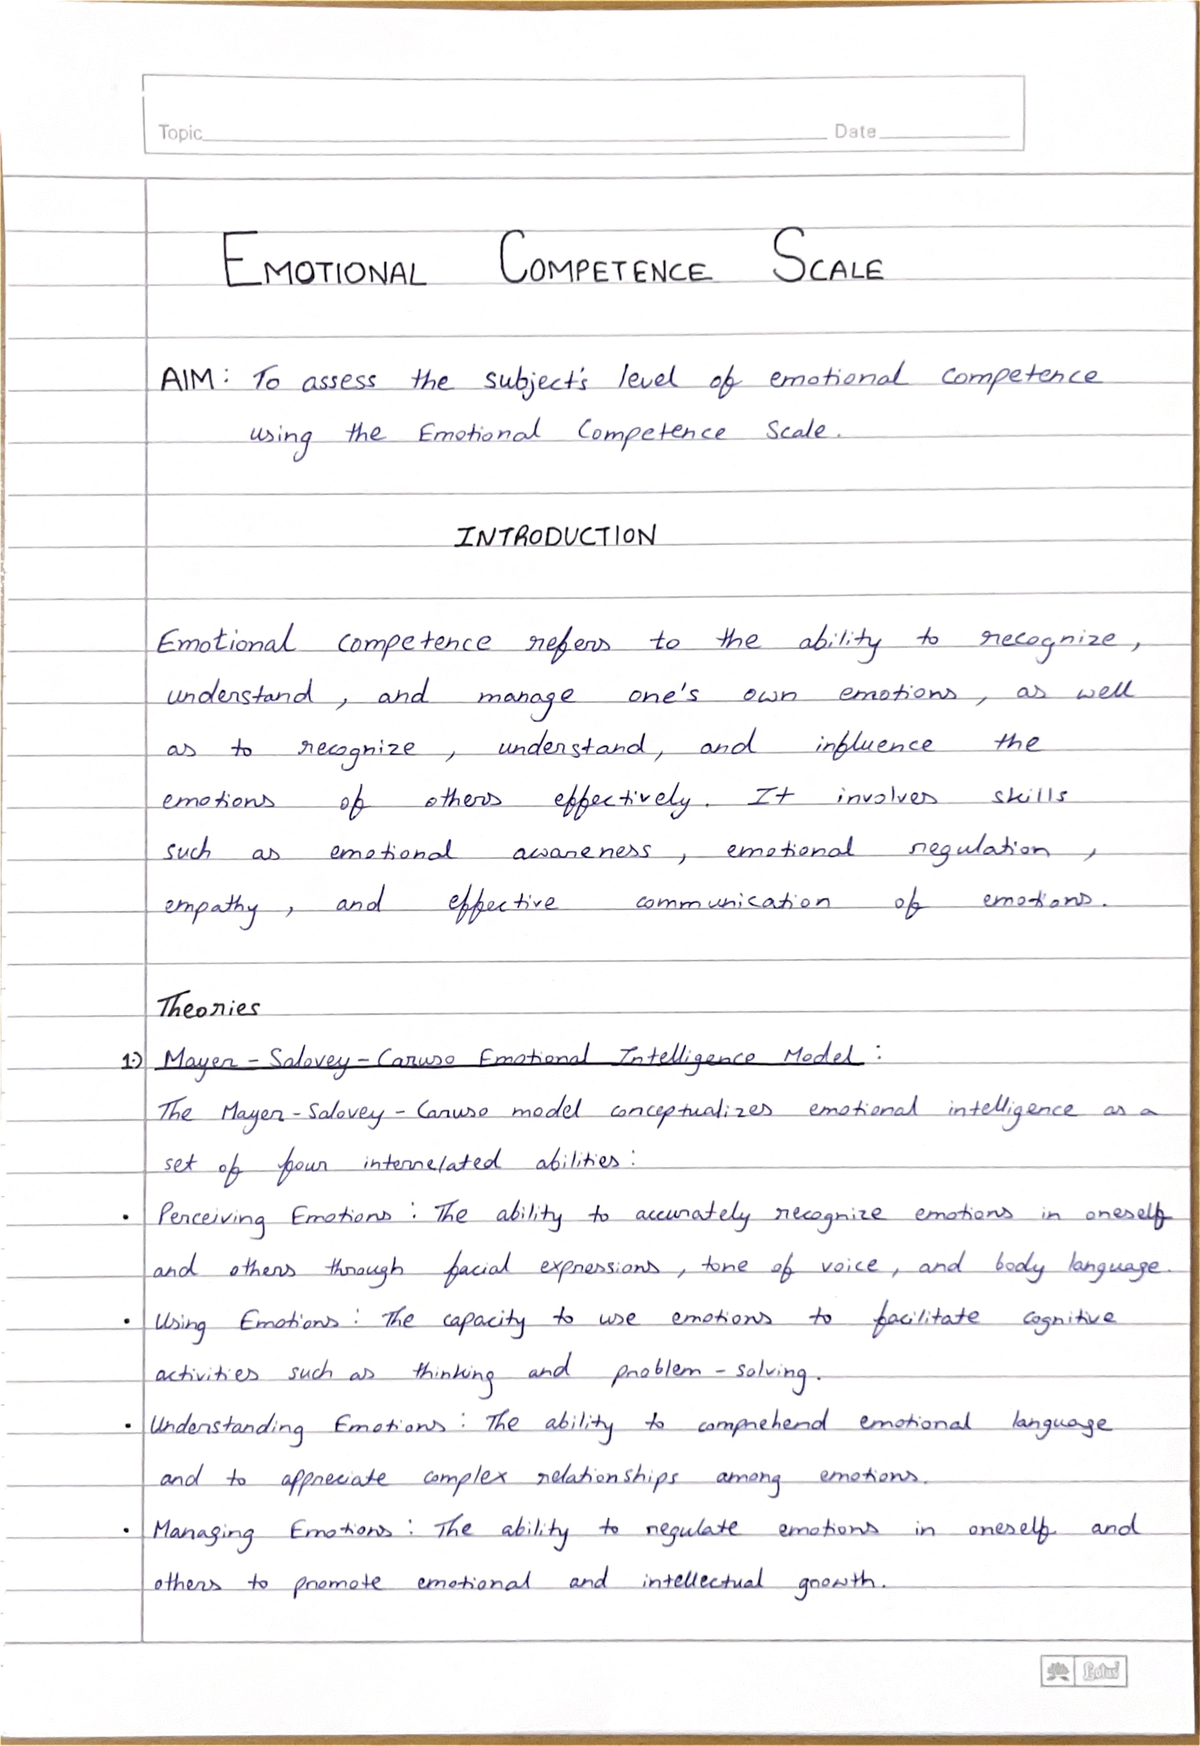 Topic Date
EMOTIONAL COMPETENCE SCALE
AIM: To assess the subject's level of emotional competence
using the Emotional Competence Scale.
INTRODUCTION
Emotional competence refers to the ability to recognize,
understand, and manage one's own emotions, as well
as to recognize, understand, and influence the
emotions of others effectively. It involves skills
such as emotional awareness, emotional regulation,
empathy, and effective communication of emotions.
Theories
1.) Mayer-Salovey-Caruso Emotional Intelligence Model:
The Mayer-Salovey-Caruso model conceptualizes emotional intelligence as a
set of four interrelated abilities:
• Perceiving Emotions: The ability to accurately recognize emotions in oneself
and others through facial expressions, tone of voice, and body language.
• Using Emotions: The capacity to use emotions to facilitate cognitive
activities such as thinking and problem-solving.
• Understanding Emotions: The ability to comprehend emotional language
and to appreciate complex relationships among emotions.
• Managing Emotions: The ability to regulate emotions in oneself and
others to promote emotional and intellectual growth.
Lotus